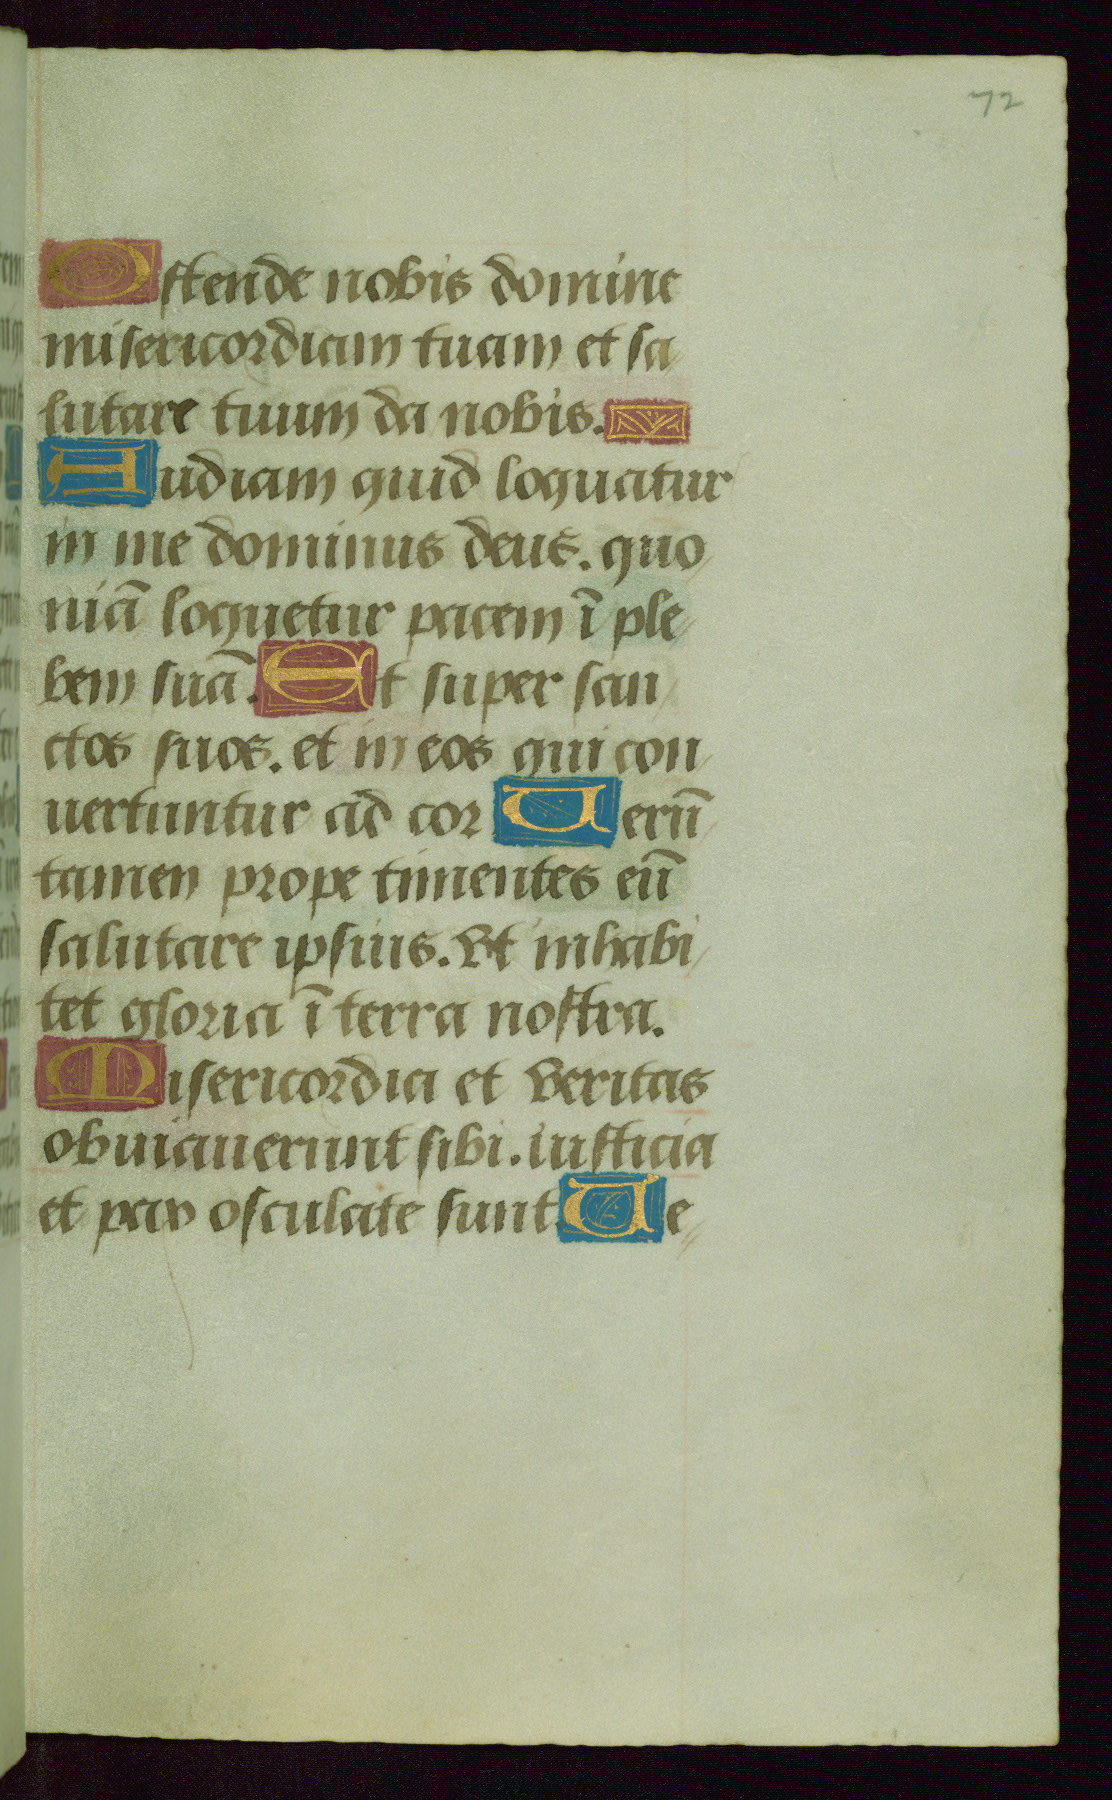 72
Ostende nobis domine
misericordiam tuam et sa
lutare tuum da nobis.
Audiam quid loquatur
in me dominus deus. quo
niā loquetur pacem ī ple
bem suā. Et super san
ctos suos. et in eos qui con
uertuntur ad cor Uerū
tamen prope timentes eū
salutare ipsius. Vt inhabi
tet gloria ī terra nostra.
Misericordia et veritas
obuiauerunt sibi. iusticia
et pax osculate sunt. Ue